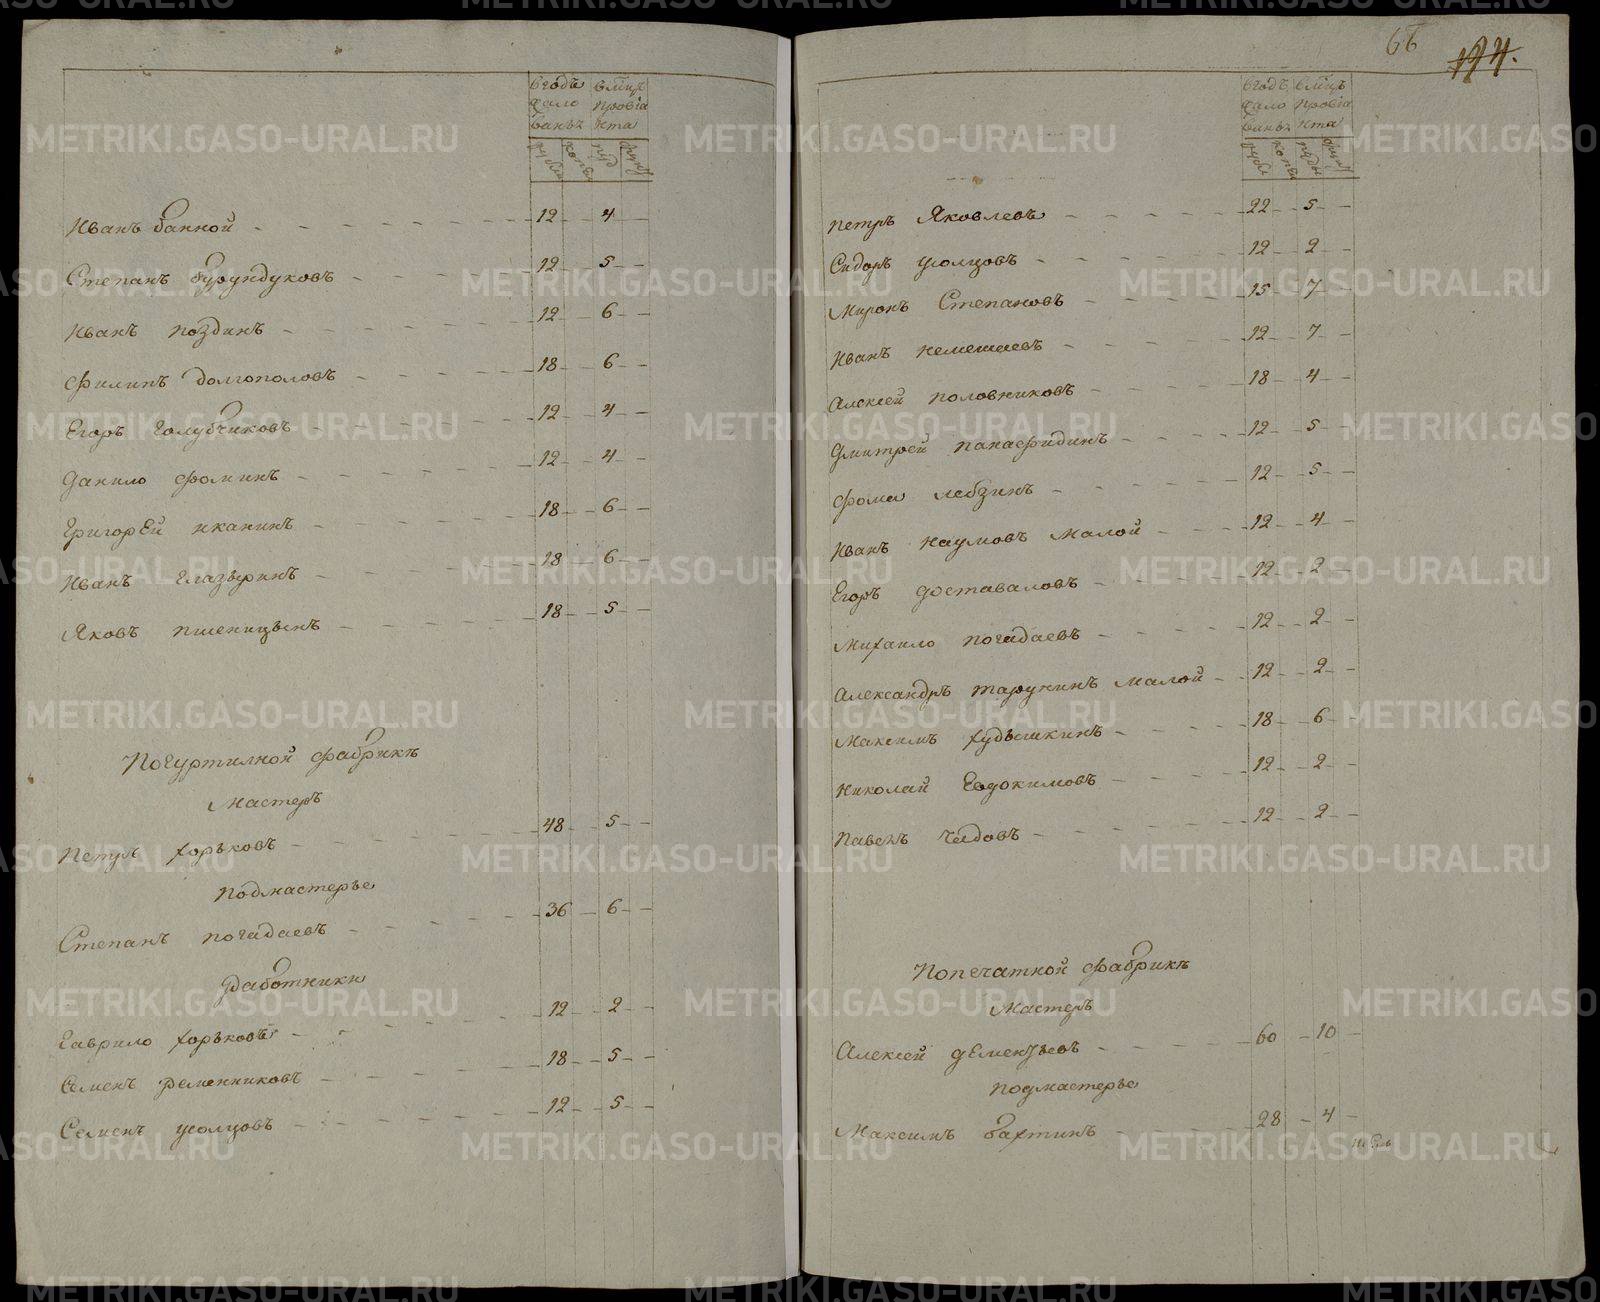 вгодъ жало ванья
вмцъ провiа нта
рубли копѣи пуд фунт
Иванъ банной 12 4
Степанъ бурундуковъ 12 5
Иванъ поздинъ 12 6
Филипъ долгополовъ 18 6
Егоръ голубчиковъ 12 4
Данило фоминъ 12 4
Григорей иканинъ 18 6
Иванъ глазыринъ 18 6
Яковъ пшеницынъ 18 5
Погуртилной фабрикѣ
Мастеръ
Петръ хорьковъ 48 5
Подмастерье
Степанъ погадаевъ 36 6
Работники
Гаврило хорьковъ 12 2
Семенъ ременниковъ 18 5
Семенъ усолцовъ 12 5
66
194.
вгодъ жало ванья
вмцъ провiа нта
рубли копѣи пуды фунт
Петръ Яковлевъ 22 5
Сидоръ усолцовъ 12 2
Миронъ Степановъ 15 7
Иванъ немешаевъ 12 7
Алексей половниковъ 18 4
Дмитрей панафидинъ 12 5
Фома лебзинъ 12 5
Иванъ наумовъ малой 12 4
Егоръ доставаловъ 12 2
Михаило погадаевъ 12 2
Александръ тарунинъ малой 12 2
Максимъ худышкинъ 18 6
Николай Евдокимовъ 12 2
Павелъ чадовъ 12 2
Попечатной фабрикѣ
Мастеръ
Алексей дементьевъ 60 10
подмастерье
Максимъ бахтинъ 28 4
METRIKI.GASO-URAL.RU